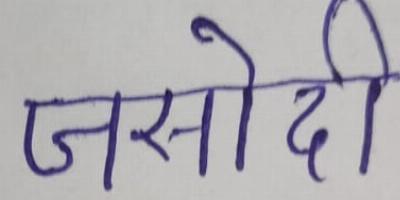 जसोदी